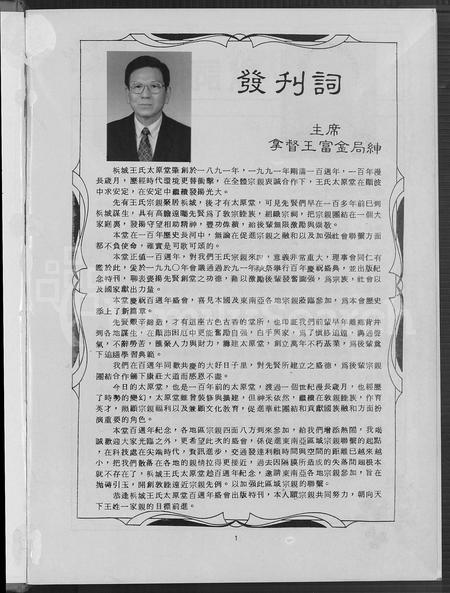 發刊詞
主席
拿督王富金局紳
檳城王氏太原堂肇創於一八九一年，一九九一年剛滿一百週年，一百年漫
長歲月，歷經時代環境更替衝擊，在全體宗親衷誠合作下，王氏太原堂在顛波
中求安定，在安定中繼續發揚光大。
先有王氏宗親聚居檳城，後才有太原堂，可是先賢們早在一百多年前已到
檳城謀生，具有高瞻遠矚先賢爲了敦宗睦族，組織宗祠，把宗親團結在一個大
家庭裏，發揚守望相助精神，豐功偉績，給後輩無限激勵與崇敬。
本堂在一百年歷史長河中，無論在促進宗親之融和以及加強社會聯繫方面
都不負使命，確實是可歌可頌的。
本堂正值一百週年，對我們王氏宗親來說，意義非常重大，理事會同仁有
鑑於此，爰於一九九〇年會議通過於九一年
舉行百年慶祝盛典，並出版紀
念特刊，聊表褒揚先賢創堂之功德，藉以激勵後輩發奮圖強，爲宗族，社會以
及國家獻出力量。
本堂慶祝百週年盛會，喜見本國及東南亞各地宗親踴躍參加，爲本會歷史
添上了新篇章。
先賢艱辛締造，才有這座古色古香的堂所，也印証我們前輩早年離鄉背井
到各地謀生，在顛沛困厄中更能奮勵自强，白手興家，爲了慎終追遠，滿過聲
氣，不辭勞苦，匯聚人力與財力，籌建太原堂，創立萬年不朽基業，爲後輩奠
下追緬學習典範。
我們在百週年同歡共慶的大好日子里，對先賢所建立之盛德，爲後輩宗親
團結合作鋪下康莊大道而感恩不盡。
今日的太原堂，也是一百年前的太原堂，渡過一個世紀漫長歲月，也經歷
了時勢的變幻，太原堂雖曾裝修與擴建，但神采依然，繼續在敦親睦族，作育
英才，照顧宗親福利以及兼顧文化教育，促進華社團結和貢獻國族融和方面扮
演重要的角色。
本堂百週年紀念，各地區宗親四面八方到來參加，給我們增添熱鬧，我竭
誠歡迎大家光臨之外，更希望此次的盛會，係促進東南亞區域宗親聯繫的起點
，在科技處在尖端時代，資訊進步，交通發達利融時間與空間的距離已越來越
小，把我們散落在各地的親情拉得更接近，過去因隔膜所造成的失落問題根本
就不存在了，檳城王氏太原堂趁百週年紀念，邀請東南亞各地宗親參加，旨在
拋磚引玉，開創敦睦遠近宗親先例。以加强此區域宗親的聯繫。
恭逢檳城王氏太原堂百週年盛會出版特刊，本人願宗親共同努力，朝向天
下王姓一家親的目標前進。
1